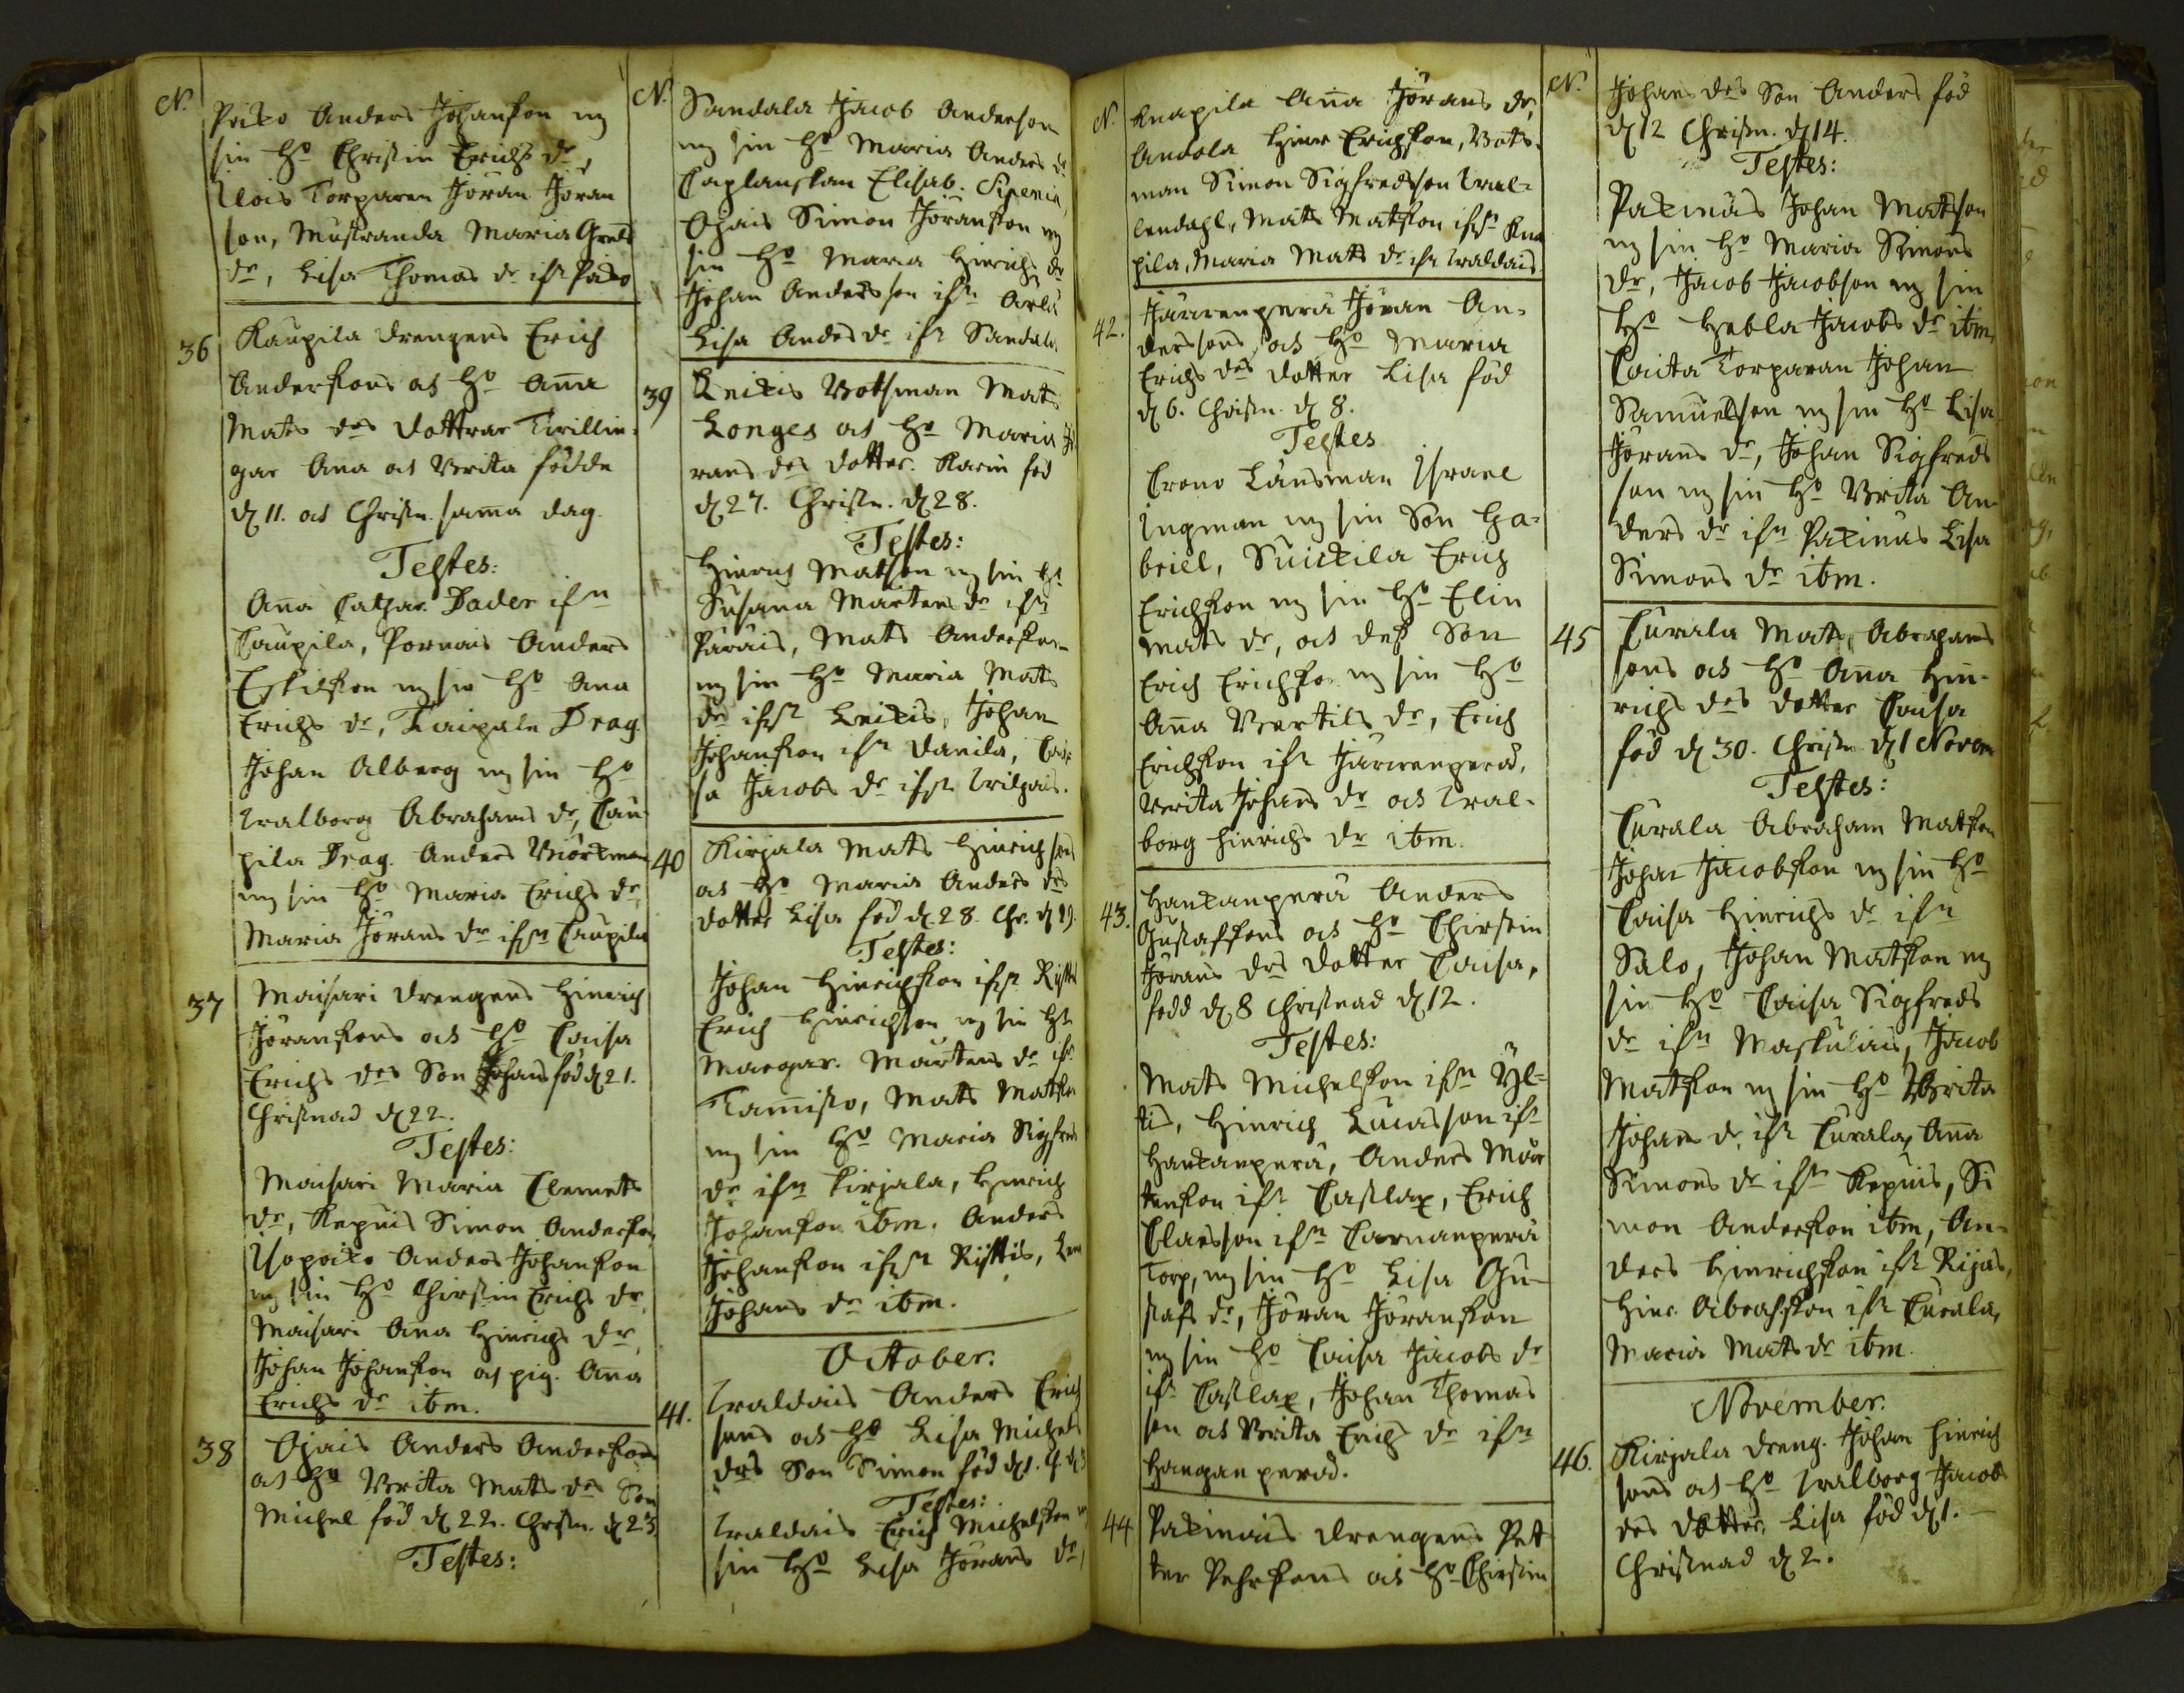 N.
Poiko Anders Johansson m
sin Ho Christin Erichs dr,
Ulois Torparen Jöran Jöran
son, Mustranda Maria Grels
dr, Lisa Thomas dr ifr Poiko
36 Kaupila drengens Erich
Anderssons ab Ho Aña
Mats drs dottrar Tvillin-
gar Ana ab Brita födde
d 11. ab Christn. sama dag.
Testes:
Aña Cathar. Bader ifrn
Caupila, Pornais Anders
Eskilsson m sin Ho Ana
Erichs dr, Taipale Drag.
Johan Alberg m sin Ho
Walborg Abrahams dr, Cau
pila Drag. Anders Biörkman
m sin Ho Maria Erichs dr,
Maria Jörans dr ifrn Caupila
37 Maisari drengens Hinrich
Jöranssons ab Ho Caisa
Erichs drs Son Johan född d 21.
Christnad d 22.
Testes:
Maisari Maria Clemets
dr, Kepuis Simon Andersson
Isopoiko Anders Johansson
m sin Ho Chirstin Erichs dr,
Maisari Ana Hinrichs dr,
Johan Johansson ab pig. Ana
Erichs dr ibm.
38 Ojais Anders Anderssons
ab Ho Brita Mats drs Son
Michel föd d 22. Christn. d 23
Testes:
N.
Sandala Jacob Andersson
m sin Ho Maria Anders dr
Caplanskan Elisab.
Ojais Simon Jöransson m
sin Ho Maria Hinrichs dr
Johan Andersson ifrn
Lisa Anders dr ifr Sandala
39 Leikis Botsman Mats
Longes ab Ho Maria Jö
rans drs dotter. Karin föd
d 27. Christn. d 28.
Testes:
Hinrich Matsson m sin Ho
Susana Mårtens dr ifrn
Parais, Mats Andersson
m sin Ho Maria Mats
dr ifrn Leikis, Johan
Johansson ifrn Danila, Cai-
sa Jacobs dr ifrn Wilpais.
40 Kirjala Mats Hinrichsons
ab Ho Maria Anders drs
dotter Lisa föd d 28. Chr. d 29.
Testes:
Johan Hinrichsson ifrn
Erich Hinrichson m sin Ho
Margar. Mårtens dr ifr
Tamisto, Mats Matsson
m sin Ho Maria Sigfreds
dr ifrn Kirjala, Hinrich
Johansson ibm. Anders
Johansson ifrn Rijttis,
Johans dr ibm.
October.
41. Waldais Anders Erich
sons ab Ho Lisa Michels
drs Son Simon föd d 1. C. d 3
Testes:
Waldais Erich Michelsson m
sin Ho Lisa Jörans dr,
N.
Knapila Aña Jörans dr,
Andola Hinr Erichsson, Bots-
man Simon Sigfredsson Wal-
lendahl, Mats Matsson ifrn Kna
pila, Maria Mats dr ifr Waldais
42. Järvenperä Jöran An-
derssons ab Ho Maria
Erichs drs dotter Lisa föd
d 6. Christn. d 8.
Testes
Crono Länsman Israel
Ingman m sin Son Ga-
briel, Suickila Erich
Erichsson m sin Ho Elin
Mats dr, ab dess Son
Erich Erichsson m sin Ho
Aña Bertils dr, Erich
Erichsson ifr Järvenperä,
Brita Johans dr ab Wal-
borg Hinrichs dr ibm.
43. Hankanperä Anders
Gustafsons ab Ho Chirstin
Jörans drs dotter Caisa,
född d 8 Christnad d 12.
Testes:
Mats Michelsson ifrn Yl-
tis, Hinrich Lucasson ifr
Hankanperä, Anders Mår
tensson ifr Caslax, Erich
Claesson ifrn Carnanperä
Torp, m sin Ho Lisa Gu-
stafs dr, Jöran Jöransson
m sin Ho Caisa Jacobs dr
ifr Caslax, Johan Thomas
son ab Brita Erichs dr ifrn
Hangan perä.
44 Pakinais drengens Pet
ter Pehrsons ab Ho Chirstin
N.
Johans drs Son Anders föd
d 12 Christn. d 14.
Testes:
Pakinais Johan Matsson
m sin Ho Maria Simons
dr, Jacob Jacobson m sin
Ho Hebla Jacobs dr ibm,
Coita Torparen Johan
Samuelsson m sin Ho Lisa
Jörans dr, Johan Sigfreds
son m sin Ho Brita An-
ders dr ifrn Pakinais Lisa
Simons dr ibm.
45 Curala Mats Abrahams
sons ab Ho Aña Hin-
richs drs dotter Caisa
föd d 30. Christn. d 1 Novem
Testes:
Curala Abraham Matsson
Johan Jacobsson m sin Ho
Caisa Hinrichs dr ifrn
Salo, Johan Matsson m
sin Ho Caisa Sigfreds
dr ifrn Maskulais, Jacob
Matsson m sin Ho Brita
Johans dr ifr Curala, Aña
Simons dr ifrn Kepuis, Si
mon Andersson ibm, An-
ders Hinrichsson ifr Rijais,
Hinr Abrahsson ifr Curala,
Maria Mats dr ibm.
November.
46. Kirjala dreng. Johan Hinrich
sons ab Ho Walborg Jacobs
drs dotter Lisa föd d 1.
Christnad d 2.